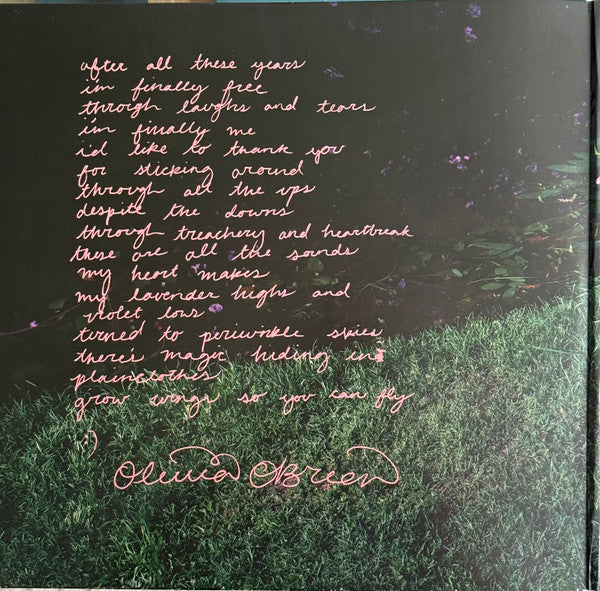 after all these years
i'm finally free
through laughs and tears
i'm finally me
i'd like to thank you
for sticking around
through all the ups
despite the downs
through treachery and heartbreak
these are all the sounds
my heart makes
my lavender highs and
violet lows
turned to periwinkle skies
there's magic hiding in
plainclothes
grow wings so you can fly
:)
Olivia O'Brien